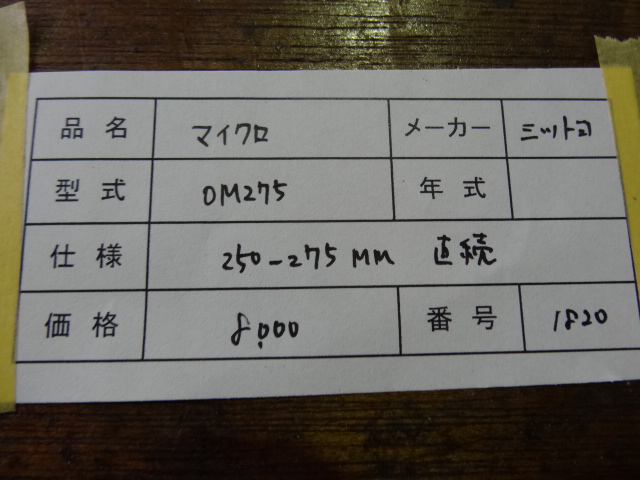 品名 マイクロ メーカー ミツトヨ
型式 OM275 年式
仕様 250-275MM 直続
価格 8,000 番号 1820